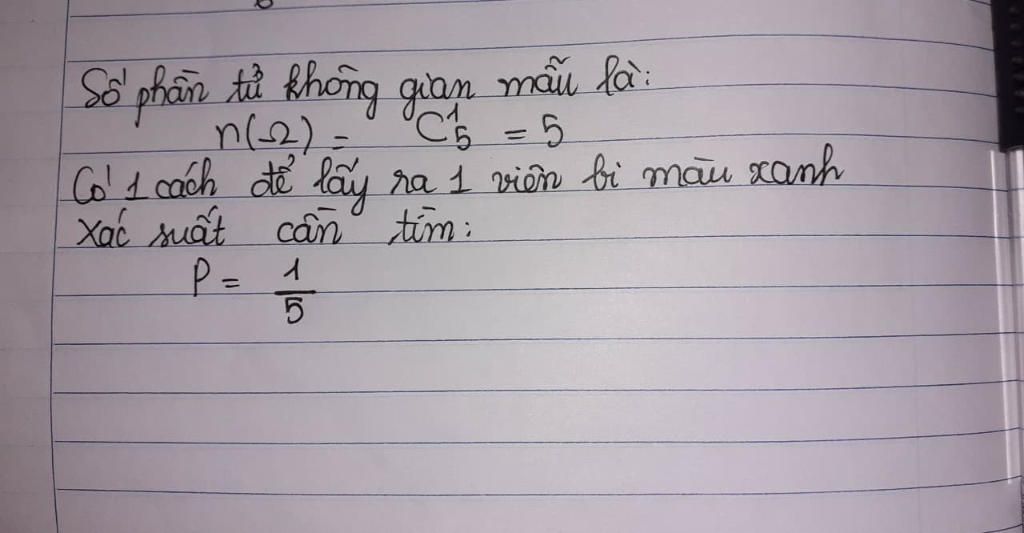 Số phần tử không gian mẫu là:
n(Ω) = C¹₅ = 5
Có 1 cách để lấy ra 1 viên bi màu xanh
Xác suất cần tìm:
P = 1/5